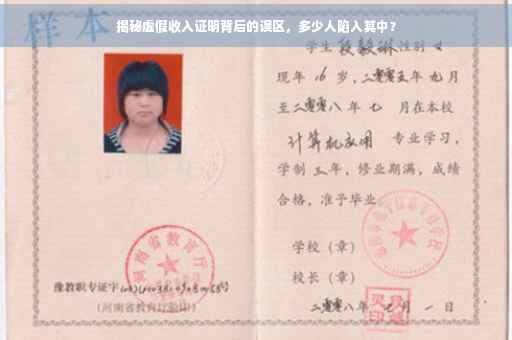 揭秘虚假收入证明背后的误区，多少人陷入其中？
样本
学生段毅琳性别女
现年16岁，二零零五年九月
至二零零八年七月在本校
计算机应用 专业学习，
学制三年，修业期满，成绩
合格，准予毕业
学校（章）
校长（章）
二零零八年 月一日
河南省教育厅
豫教职专证字
（河南省教育厅验印）